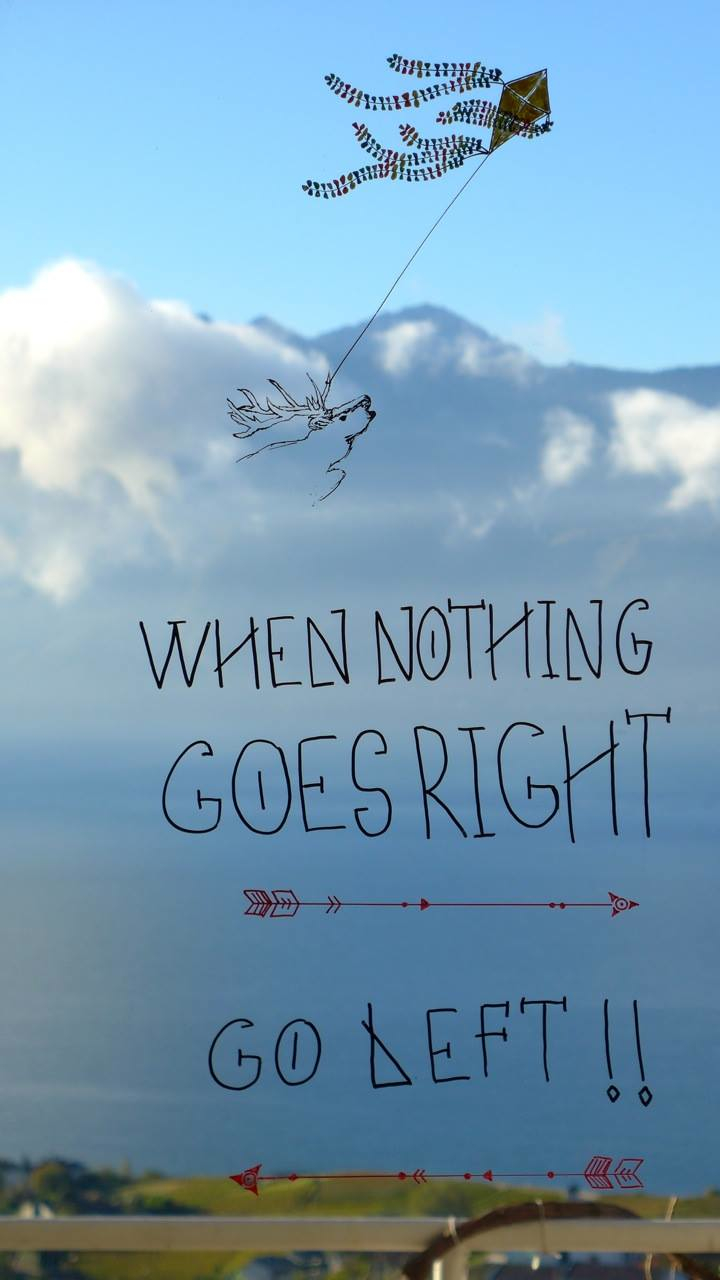 WHEN NOTHING
GOES RIGHT
GO LEFT !!